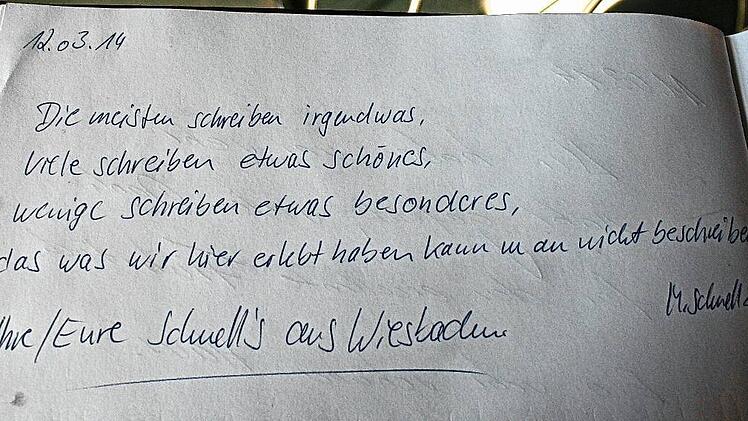 12.03.14
Die meisten schreiben irgendwas,
viele schreiben etwas schönes,
wenige schreiben etwas besonderes,
das was wir hier erlebt haben kann man nicht beschreibe
M. Schnell
Ihre/Eure Schnell's aus Wiesbaden